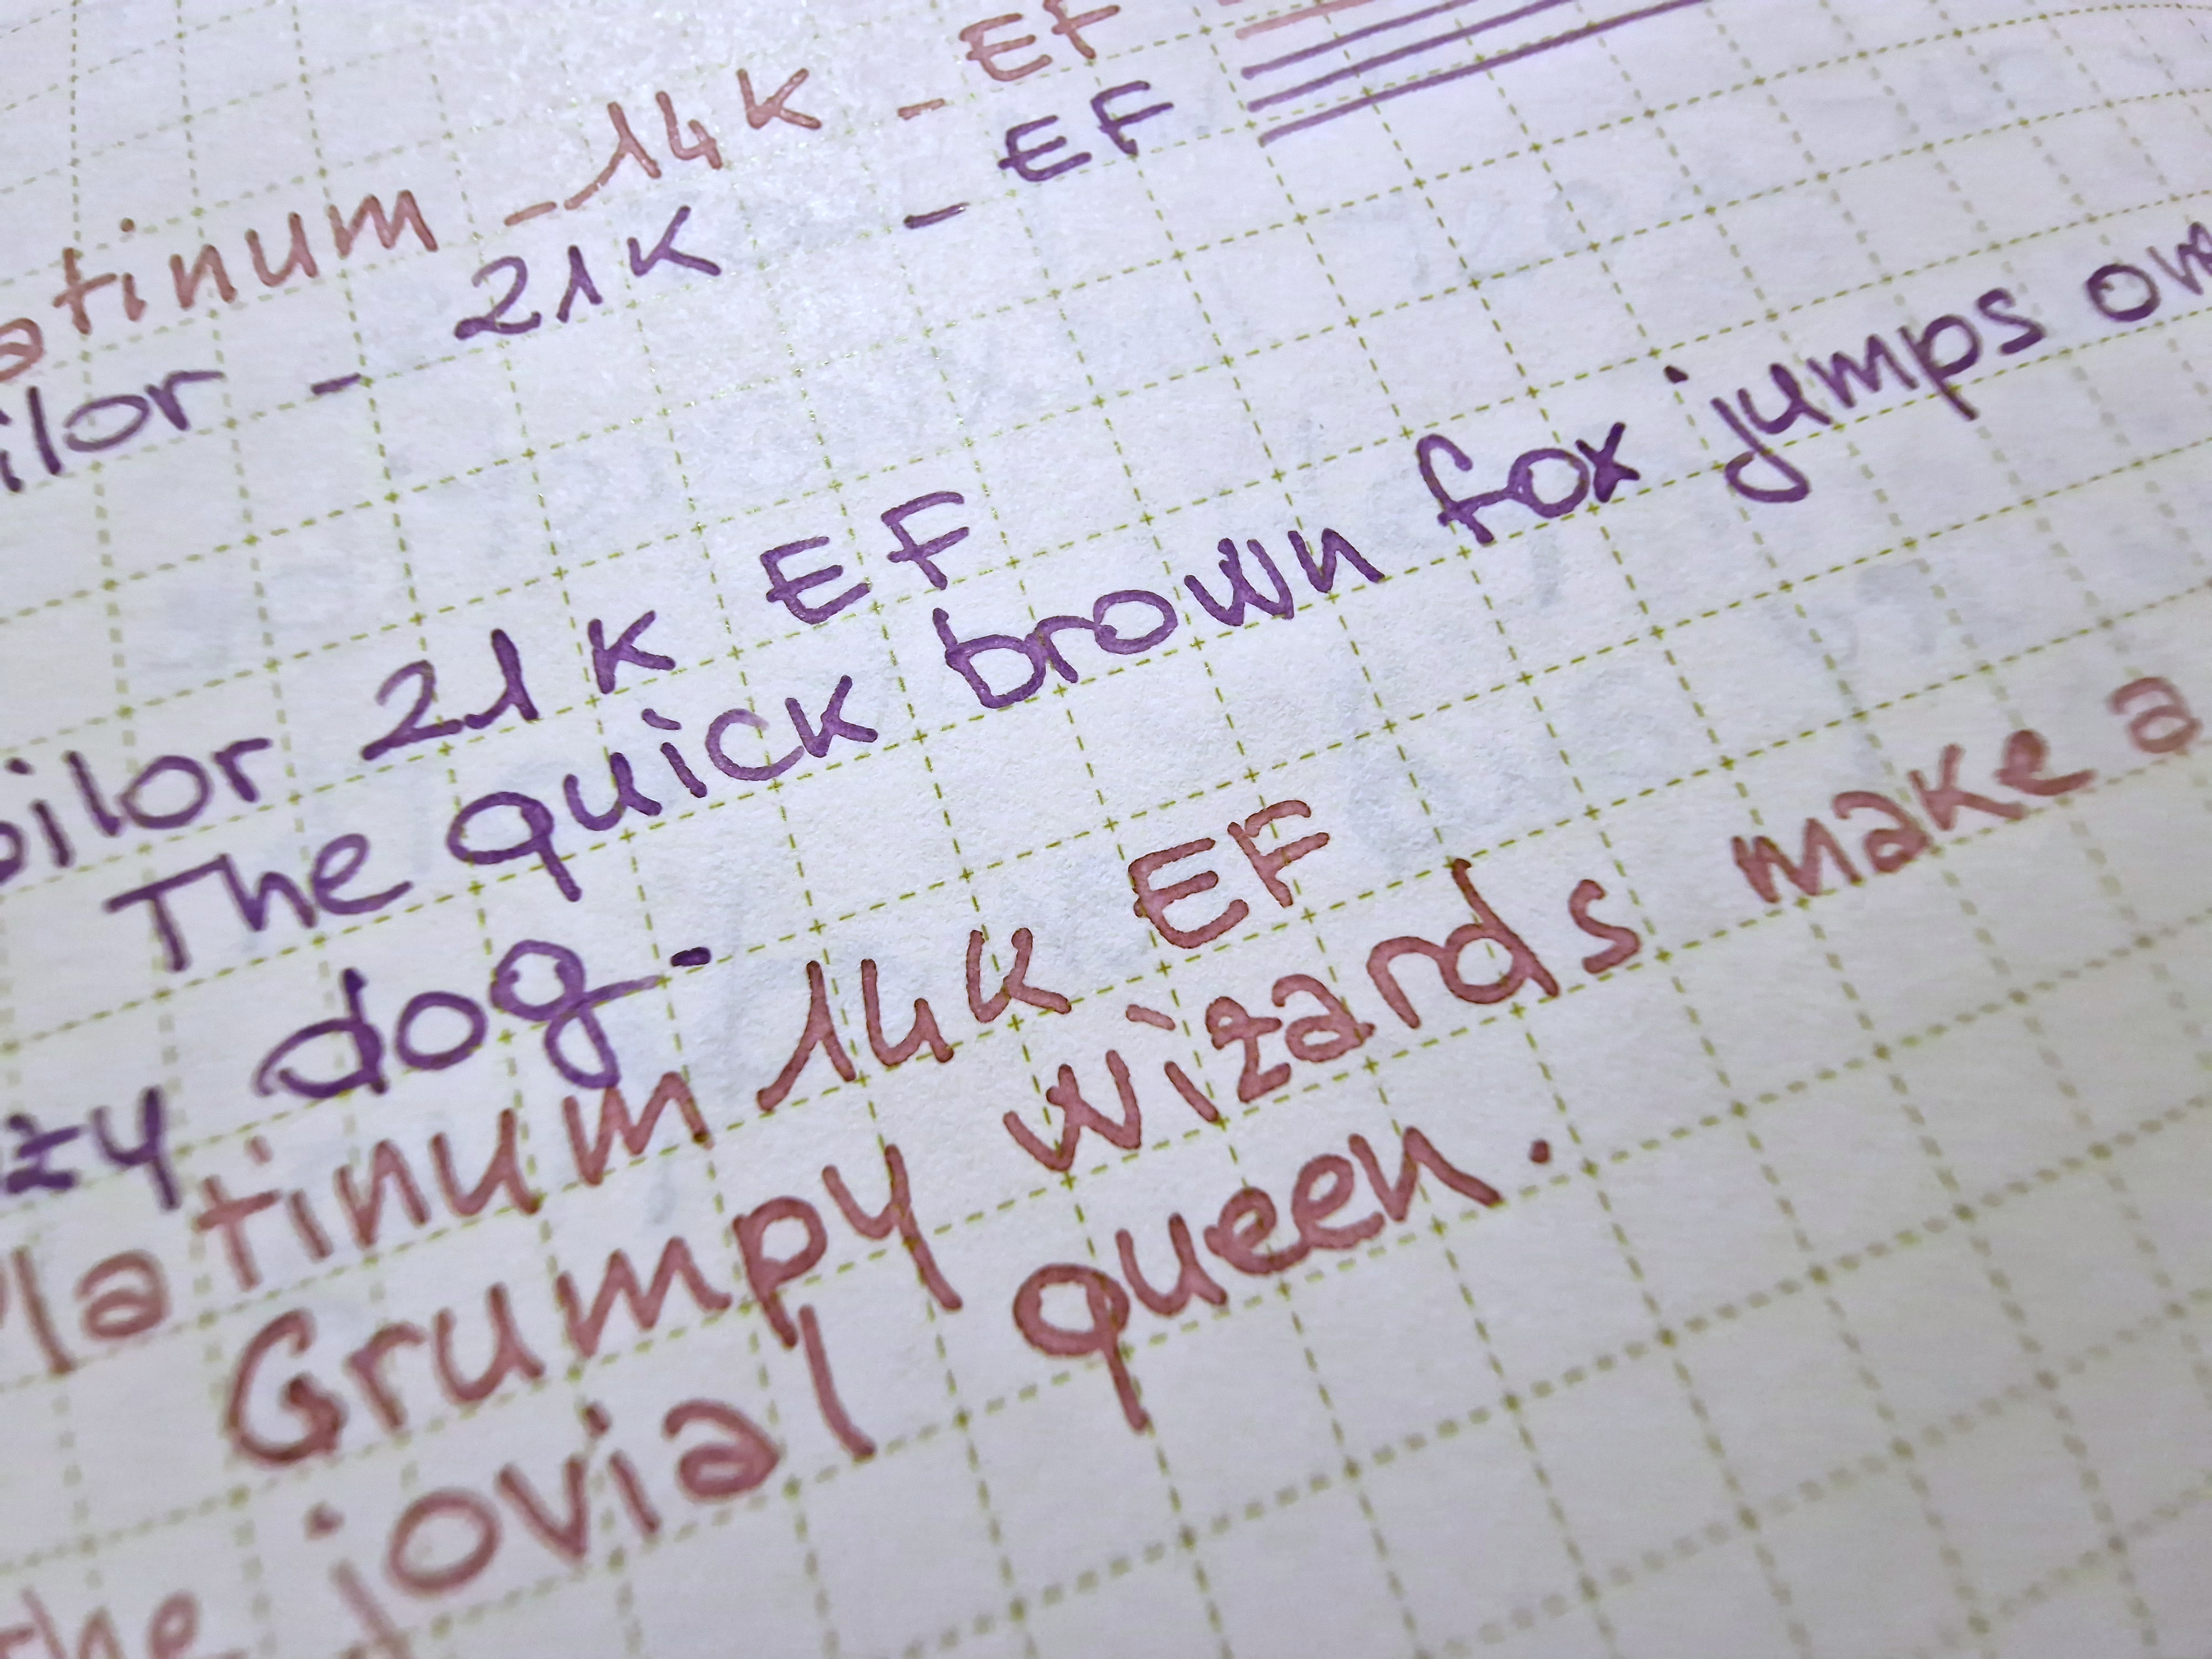 atinum - 14K - EF
ilor - 21K - EF
ilor 21K EF
The quick brown fox jumps
zy dog.
Platinum 14K EF
Grumpy wizards make a
the jovial queen.